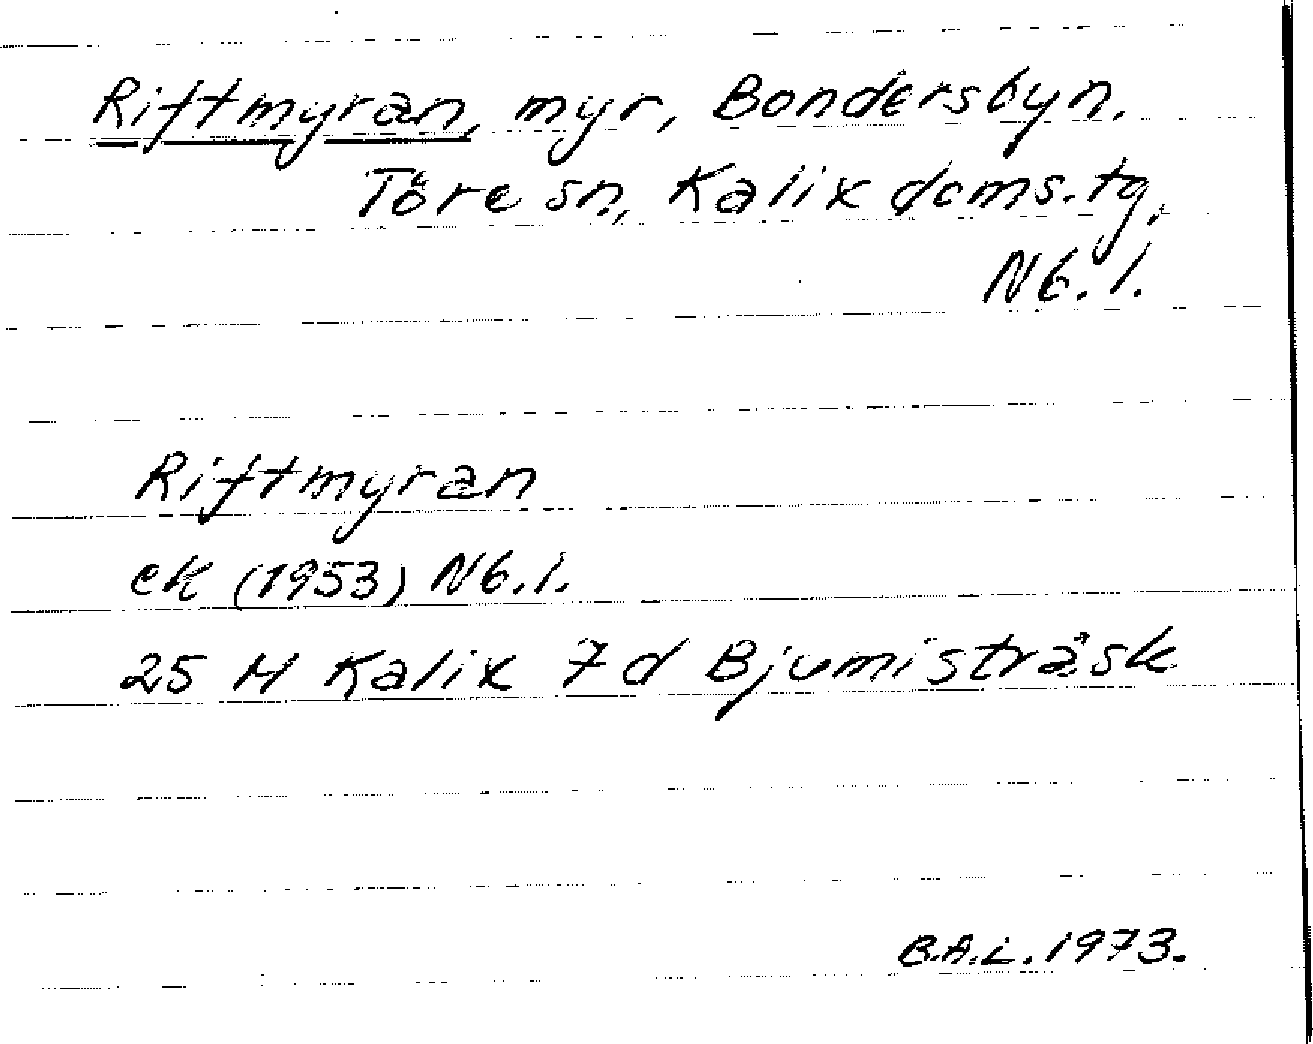 Riftmyran, myr, Bondersbyn.
Töre sn, Kalix doms.tg,
Nb. l.
Riftmyran
ek (1953) Nb. l.
25 M Kalix 7d Bjumisträsk
B.A.L. 1973.